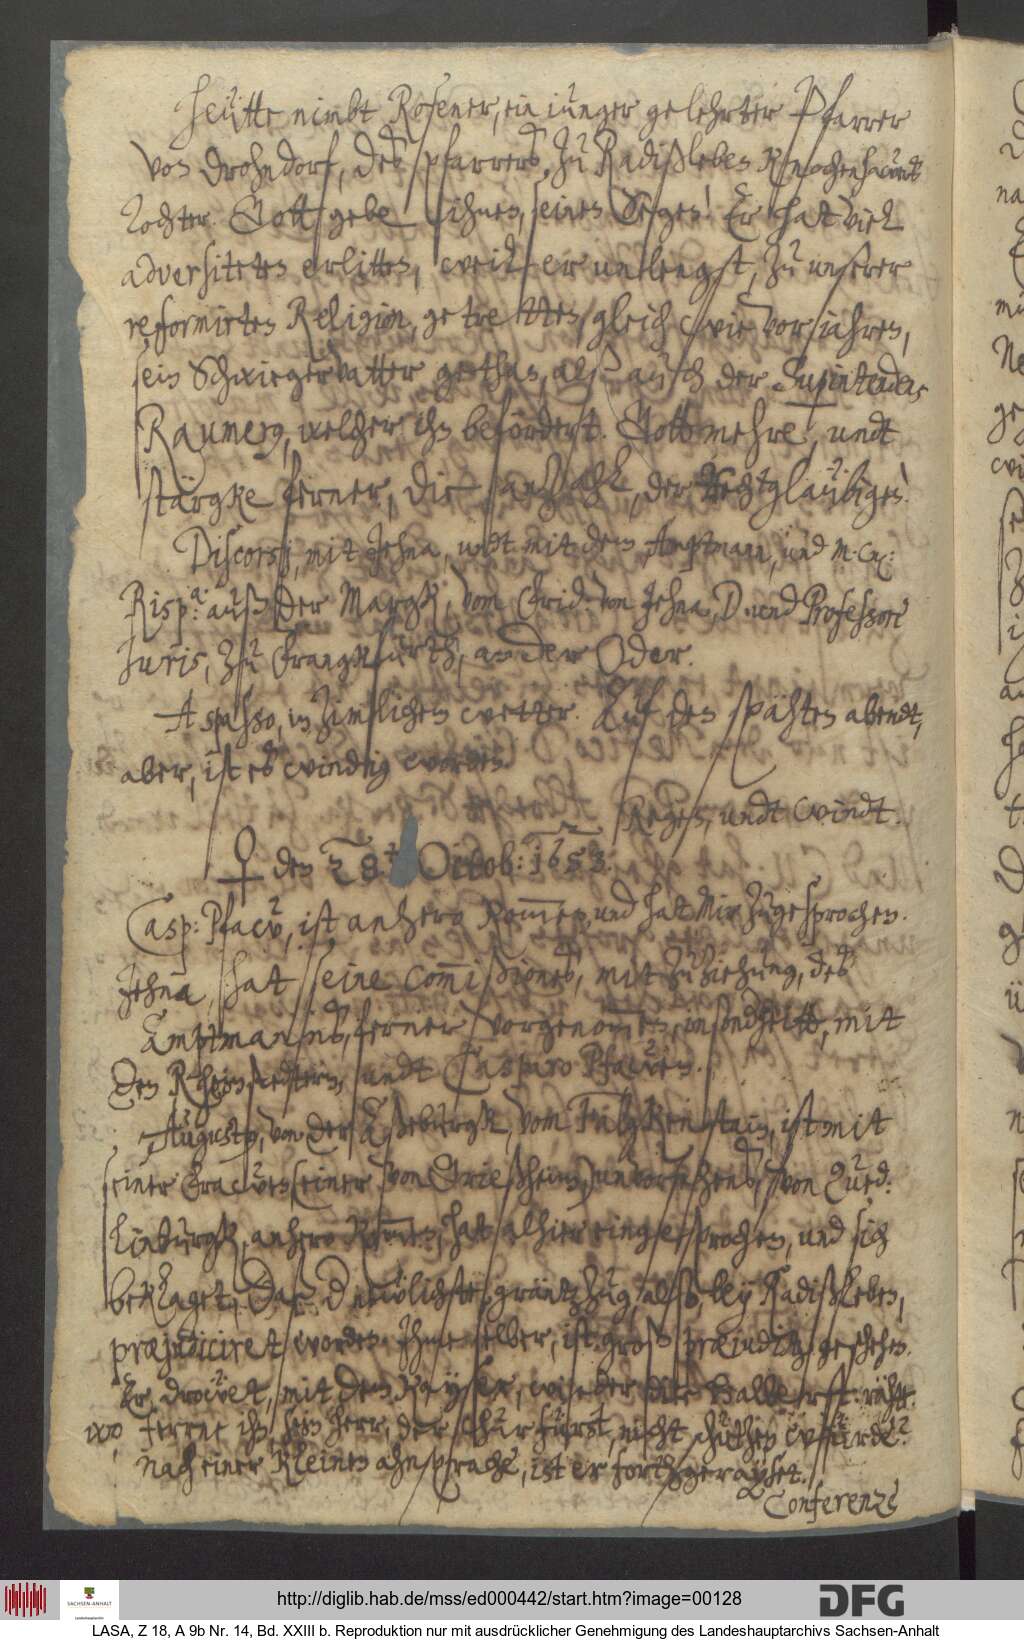 Heütte nimbt Rosener, ein iunger gelehrter Pfarrer
von Drohndorf, des pfarrers, zu Radißleben Knochenhauers
Tochter. Gott gebe ihnen, seinen Segen! Er hat viel
adversiteten erlitten, weil er unlengst, zu unserer
reformirten Religion, getretten, gleich wie vor iahren,
sein Schwiegervatter gethan, alß auch der Superintendens
Raumerus, welcher ihn befördert. Gott mehre, undt
stärgke ferner, die anzahl, der Rechtgläubigen!
Discorsi, mit Jehna, undt mit dem Amptmann, und
Risp.a: auß der Margk, vom Frid: von Jehna, D. und Professore
Juris, zu Franckfurth, an der Oder.
A spasso, in zimlichem wetter. Auf den spähten abendt,
aber, ist es windig worden.
Regen, undt windt.
♀ den 28t. Octob: 1653.
Casp: Pfau, ist anhero kommen, und hat mir zugesprochen.
Jehna, hat seine Commißiones, mit zuziehung, des
Amptmanns, ferner vorgenommen, insonderheitt, mit
den Reinstedtern, undt Casparo Pfauen.
Augustus, von der Aßeburgk, vom Falckenstein, ist mit
seiner Frawen, (einer von Grießheim) unversehens, von Qued:
linburgk, anhero kommen, hat alhier eingesprochen, und sich
beklaget, Daß neẅlichster gräntzzug, alß, bey Radißleben,
præjudiciret worden. Jhme selber, ist groß præjuditz geschehen.
Er drowet, mit dem Kayser, wieder die Halberst: rähte.
wo ferrne ihn, sein herr, der Churfürst, nicht schützen würde.
Nach einer kleinen ahnsprache, ist er forthgerayset.
Conferenze
http://diglib.hab.de/mss/ed000442/start.htm?image=00128
SACHSEN-ANHALT
Landeshauptarchiv
DFG
LASA, Z 18, A 9b Nr. 14, Bd. XXIII b. Reproduktion nur mit ausdrücklicher Genehmigung des Landeshauptarchivs Sachsen-Anhalt